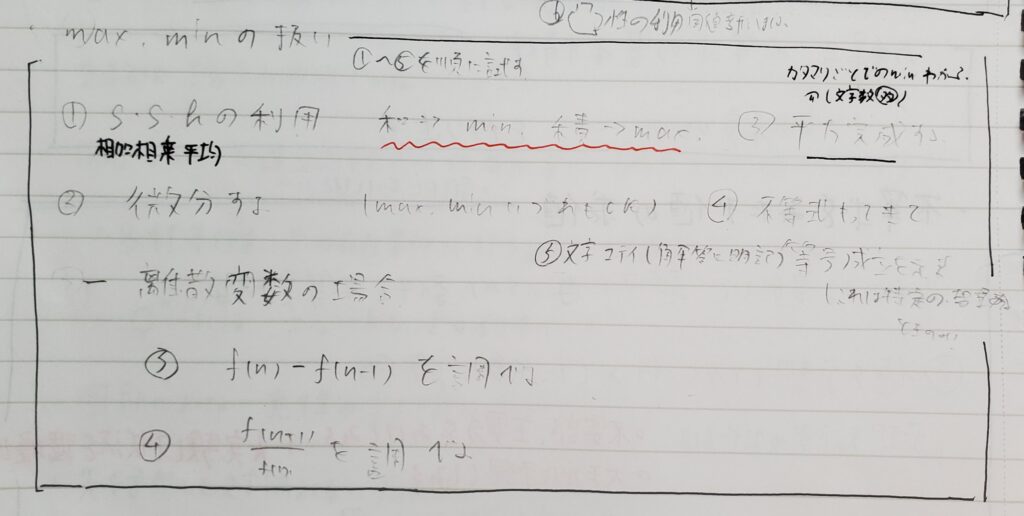 性の利用
max. minの扱い
①〜⑤を順に試す
カタマリごとでのmin わかる。
(文字数②)
① S・S・hの利用 和→ min. 積→max. ③ 平方完成する
相加相乗平均
② 微分する (max. min いつれもOK) ④ 不等式もってきて
⑤文字コテイ(解答に明記) 等号成立を示す
(これは特定の
ー 離散変数の場合
③ f(n) − f(n-1) を調べる
④ f(n+1)/f(n) を調べる